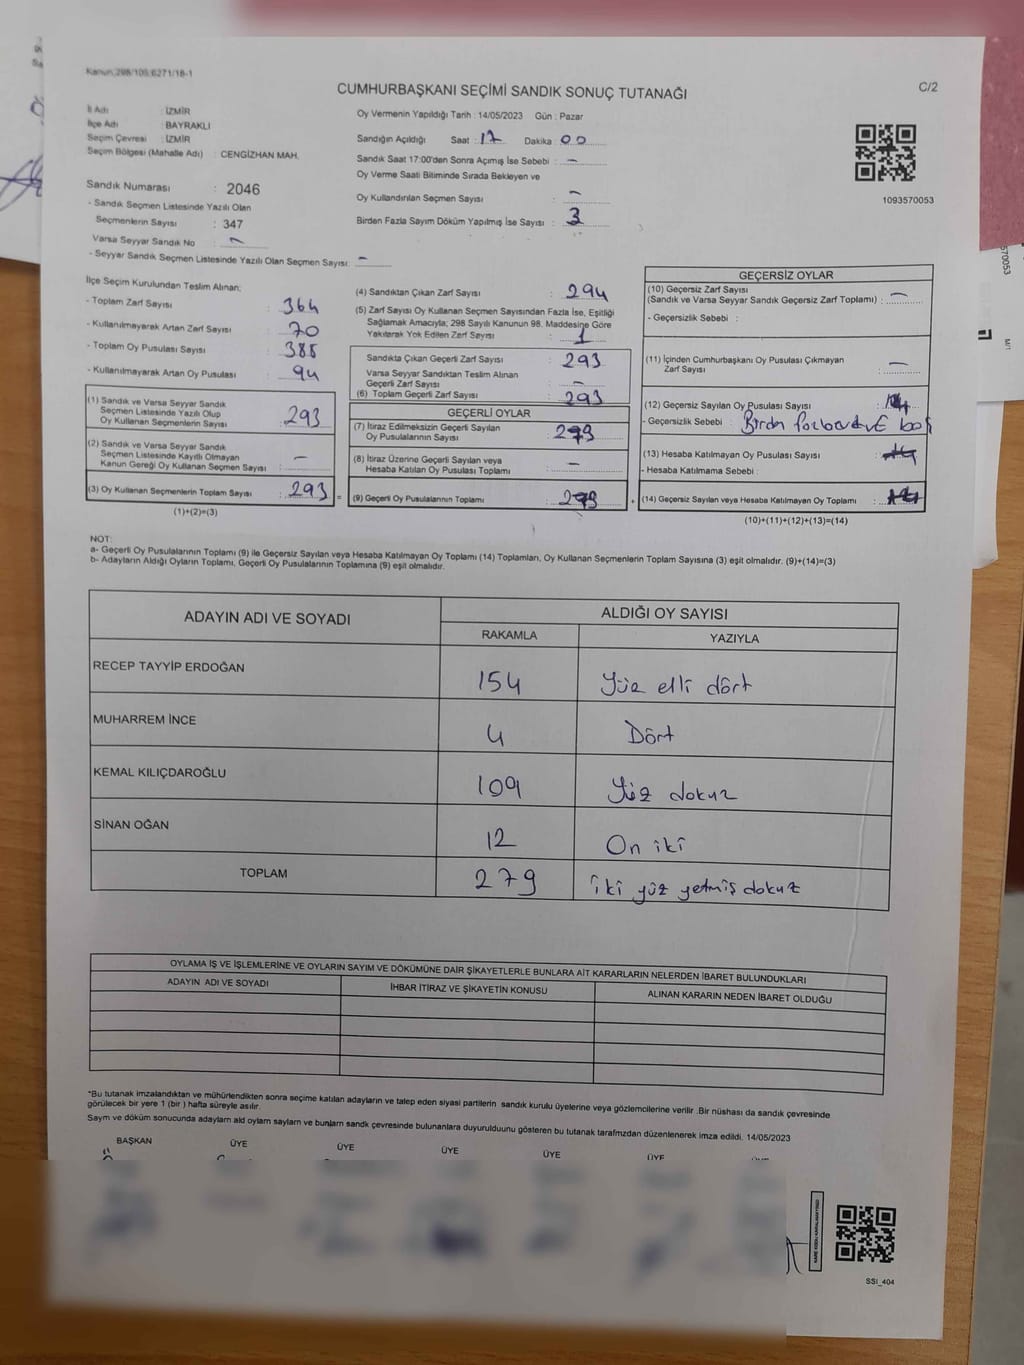 Kanun:298/105;6271/18-1
CUMHURBAŞKANI SEÇİMİ SANDIK SONUÇ TUTANAĞI
C/2
İl Adı : İZMİR
İlçe Adı : BAYRAKLI
Seçim Çevresi : İZMİR
Seçim Bölgesi (Mahalle Adı) : CENGİZHAN MAH.
Sandık Numarası : 2046
- Sandık Seçmen Listesinde Yazılı Olan
Seçmenlerin Sayısı : 347
Varsa Seyyar Sandık No : -
- Seyyar Sandık Seçmen Listesinde Yazılı Olan Seçmen Sayısı: -
Oy Vermenin Yapıldığı Tarih : 14/05/2023 Gün : Pazar
Sandığın Açıldığı Saat : 17 Dakika : 00
Sandık Saat 17:00'den Sonra Açımış İse Sebebi : -
Oy Verme Saati Bitiminde Sırada Bekleyen ve
Oy Kullandırılan Seçmen Sayısı : -
Birden Fazla Sayım Döküm Yapılmış İse Sayısı : 3
1093570053
İlçe Seçim Kurulundan Teslim Alınan:
- Toplam Zarf Sayısı : 364
- Kullanılmayarak Artan Zarf Sayısı : 70
- Toplam Oy Pusulası Sayısı : 388
- Kullanılmayarak Artan Oy Pusulası : 94
(1) Sandık ve Varsa Seyyar Sandık
Seçmen Listesinde Yazılı Olup
Oy Kullanan Seçmenlerin Sayısı : 293
(2) Sandık ve Varsa Seyyar Sandık
Seçmen Listesinde Kayıtlı Olmayan
Kanun Gereği Oy Kullanan Seçmen Sayısı : -
(3) Oy Kullanan Seçmenlerin Toplam Sayısı : 293 =
(1)+(2)=(3)
(4) Sandıktan Çıkan Zarf Sayısı : 294
(5) Zarf Sayısı Oy Kullanan Seçmen Sayısından Fazla İse, Eşitliği
Sağlamak Amacıyla; 298 Sayılı Kanunun 98. Maddesine Göre
Yakılarak Yok Edilen Zarf Sayısı : 1
Sandıkta Çıkan Geçerli Zarf Sayısı : 293
Varsa Seyyar Sandıktan Teslim Alınan
Geçerli Zarf Sayısı : -
(6) Toplam Geçerli Zarf Sayısı : 293
GEÇERLİ OYLAR
(7) İtiraz Edilmeksizin Geçerli Sayılan
Oy Pusulalarının Sayısı : 279
(8) İtiraz Üzerine Geçerli Sayılan veya
Hesaba Katılan Oy Pusulası Toplamı : -
(9) Geçerli Oy Pusulalarının Toplamı : 279 +
GEÇERSİZ OYLAR
(10) Geçersiz Zarf Sayısı
(Sandık ve Varsa Seyyar Sandık Geçersiz Zarf Toplamı) : -
- Geçersizlik Sebebi :
(11) İçinden Cumhurbaşkanı Oy Pusulası Çıkmayan
Zarf Sayısı : -
(12) Geçersiz Sayılan Oy Pusulası Sayısı :
- Geçersizlik Sebebi : Birden ve boş
(13) Hesaba Katılmayan Oy Pusulası Sayısı :
- Hesaba Katılmama Sebebi :
(14) Geçersiz Sayılan veya Hesaba Katılmayan Oy Toplamı :
(10)+(11)+(12)+(13)=(14)
NOT:
a- Geçerli Oy Pusulalarının Toplamı (9) ile Geçersiz Sayılan veya Hesaba Katılmayan Oy Toplamı (14) Toplamları, Oy Kullanan Seçmenlerin Toplam Sayısına (3) eşit olmalıdır. (9)+(14)=(3)
b- Adayların Aldığı Oyların Toplamı, Geçerli Oy Pusulalarının Toplamına (9) eşit olmalıdır.
ADAYIN ADI VE SOYADI
ALDIĞI OY SAYISI
RAKAMLA YAZIYLA
RECEP TAYYİP ERDOĞAN 154 Yüz elli dört
MUHARREM İNCE 4 Dört
KEMAL KILIÇDAROĞLU 109 Yüz dokuz
SİNAN OĞAN 12 On iki
TOPLAM 279 iki yüz yetmiş dokuz
OYLAMA İŞ VE İŞLEMLERİNE VE OYLARIN SAYIM VE DÖKÜMÜNE DAİR ŞİKAYETLERLE BUNLARA AİT KARARLARIN NELERDEN İBARET BULUNDUKLARI
ADAYIN ADI VE SOYADI İHBAR İTİRAZ VE ŞİKAYETİN KONUSU ALINAN KARARIN NEDEN İBARET OLDUĞU
*Bu tutanak imzalandıktan ve mühürlendikten sonra seçime katılan adayların ve talep eden siyasi partilerin sandık kurulu üyelerine veya gözlemcilerine verilir .Bir nüshası da sandık çevresinde
görülecek bir yere 1 (bir ) hafta süreyle asılır.
Sayım ve döküm sonucunda adayların ald oyların sayların ve bunların sandk çevresinde bulunanlara duyurulduunu gösteren bu tutanak tarafımzdan düzenlenerek imza edildi. 14/05/2023
BAŞKAN ÜYE ÜYE ÜYE ÜYE ÜYE
SSI_404